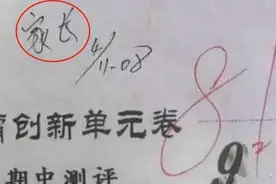 家长
4/11-08
创新单元卷
期中测评
81
9